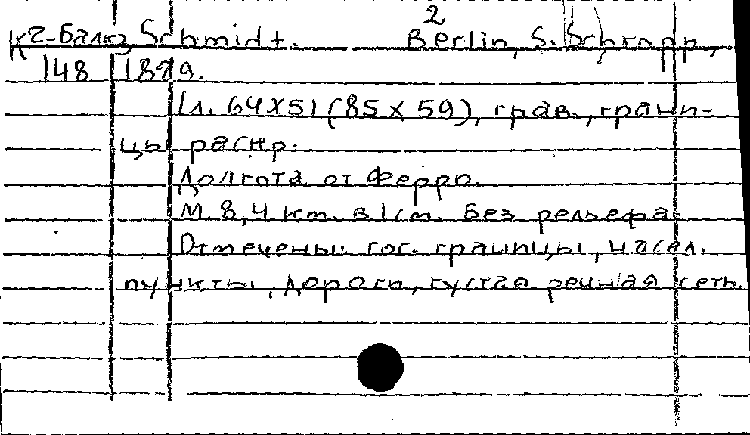 2
К2-Балк Schmidt. Berlin, S. Schropp,
148 1829.
1 л. 64 х 51 (85 х 59), грав., грани-
цы раскр.
Долгота от Ферро.
М. 8,4 км. в 1 см. Без рельефа.
Отмечены: гос. границы, насел.
пункты, дороги, густая речная сеть.